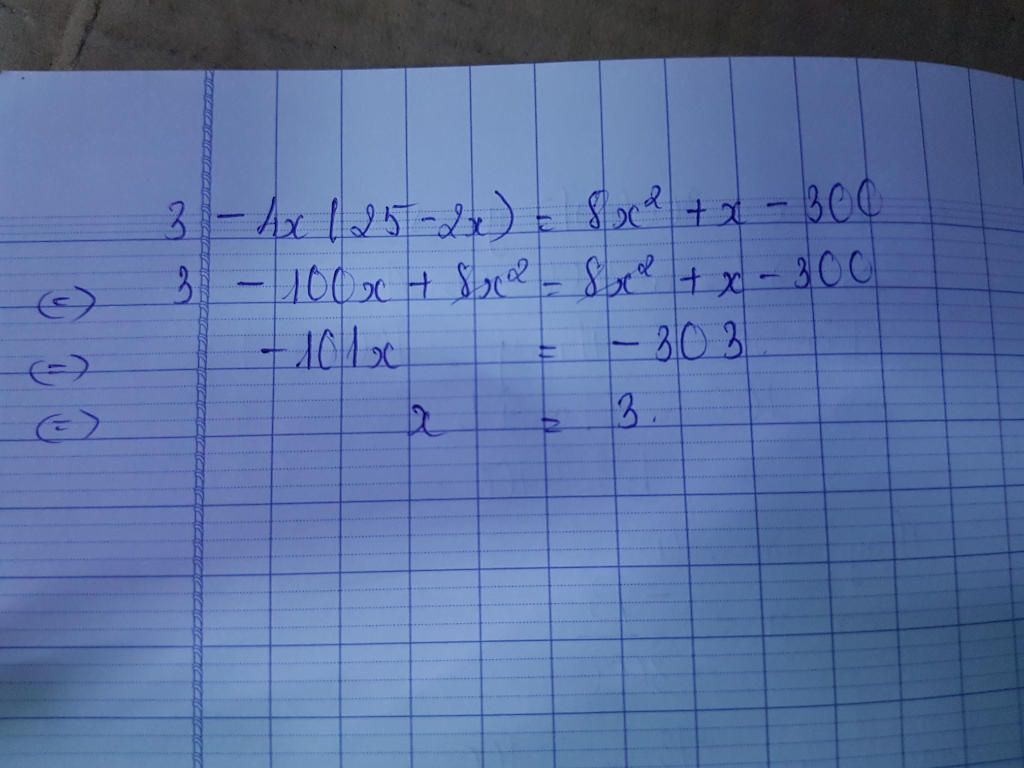 3 - 4x(25-2x) = 8x² + x - 300
(=) 3 - 100x + 8x² = 8x² + x - 300
(=) -101x = -303
(=) x = 3.